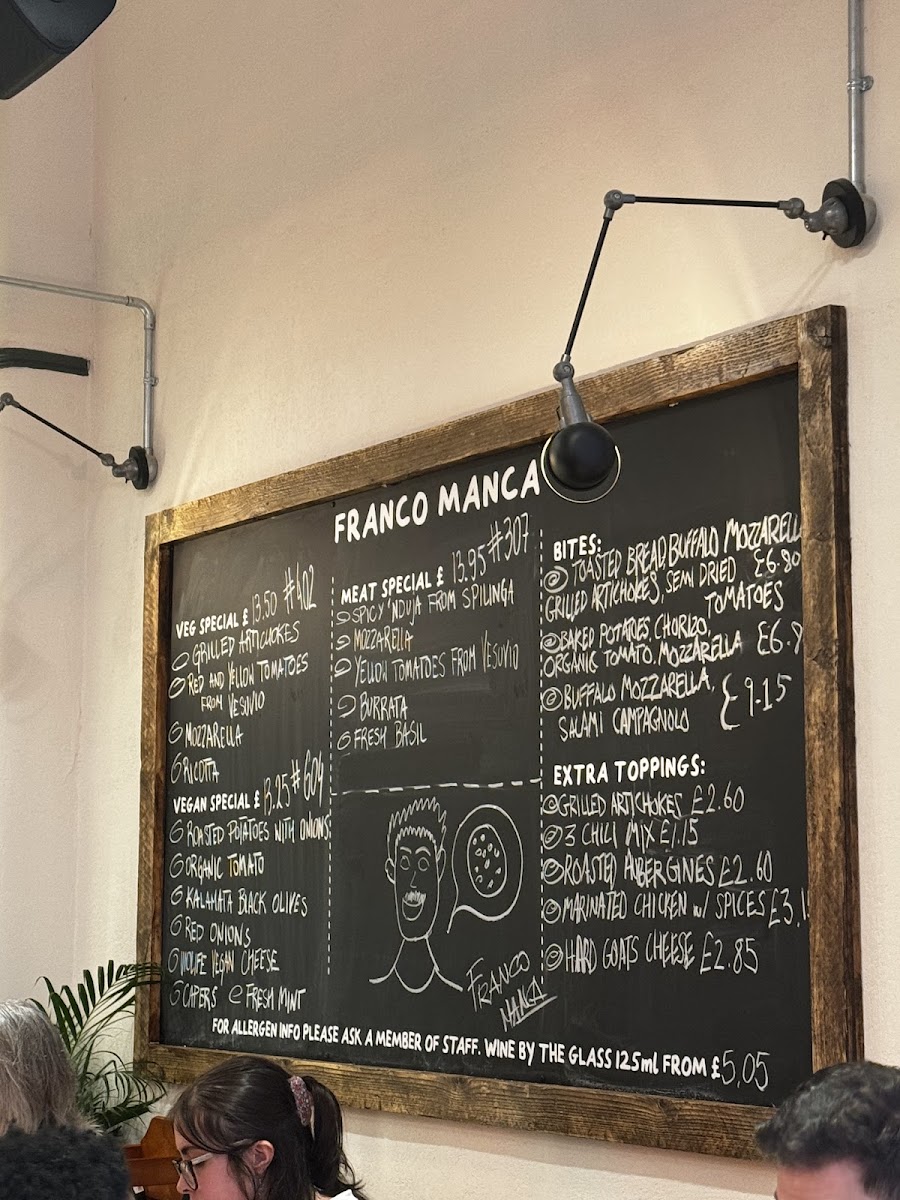 FRANCO MANCA
VEG SPECIAL £ 13.50 #402
GRILLED ARTICHOKES
RED AND YELLOW TOMATOES
FROM VESUVIO
MOZZARELLA
RICOTTA
VEGAN SPECIAL £ 13.25 #604
ROASTED POTATOES WITH ONIONS
ORGANIC TOMATO
KALAMATA BLACK OLIVES
RED ONIONS
VIOLIFE VEGAN CHEESE
CAPERS FRESH MINT
MEAT SPECIAL £ 13.95 #307
SPICY 'NDUJA FROM SPILINGA
MOZZARELLA
YELLOW TOMATOES FROM VESUVIO
BURRATA
FRESH BASIL
FRANCO
MANCA
BITES:
TOASTED BREAD, BUFFALO MOZZARELL
GRILLED ARTICHOKES, SEMI DRIED £6.80
TOMATOES
BAKED POTATOES, CHORIZO,
ORGANIC TOMATO, MOZZARELLA
BUFFALO MOZZARELLA,
SALAMI CAMPAGNOLO £9.15
EXTRA TOPPINGS:
GRILLED ARTICHOKES £2.60
3 CHILI MIX £1.15
ROASTED AUBERGINES £2.60
MARINATED CHICKEN W/ SPICES
HARD GOATS CHEESE £2.85
FOR ALLERGEN INFO PLEASE ASK A MEMBER OF STAFF. WINE BY THE GLASS 125ml FROM £5,05